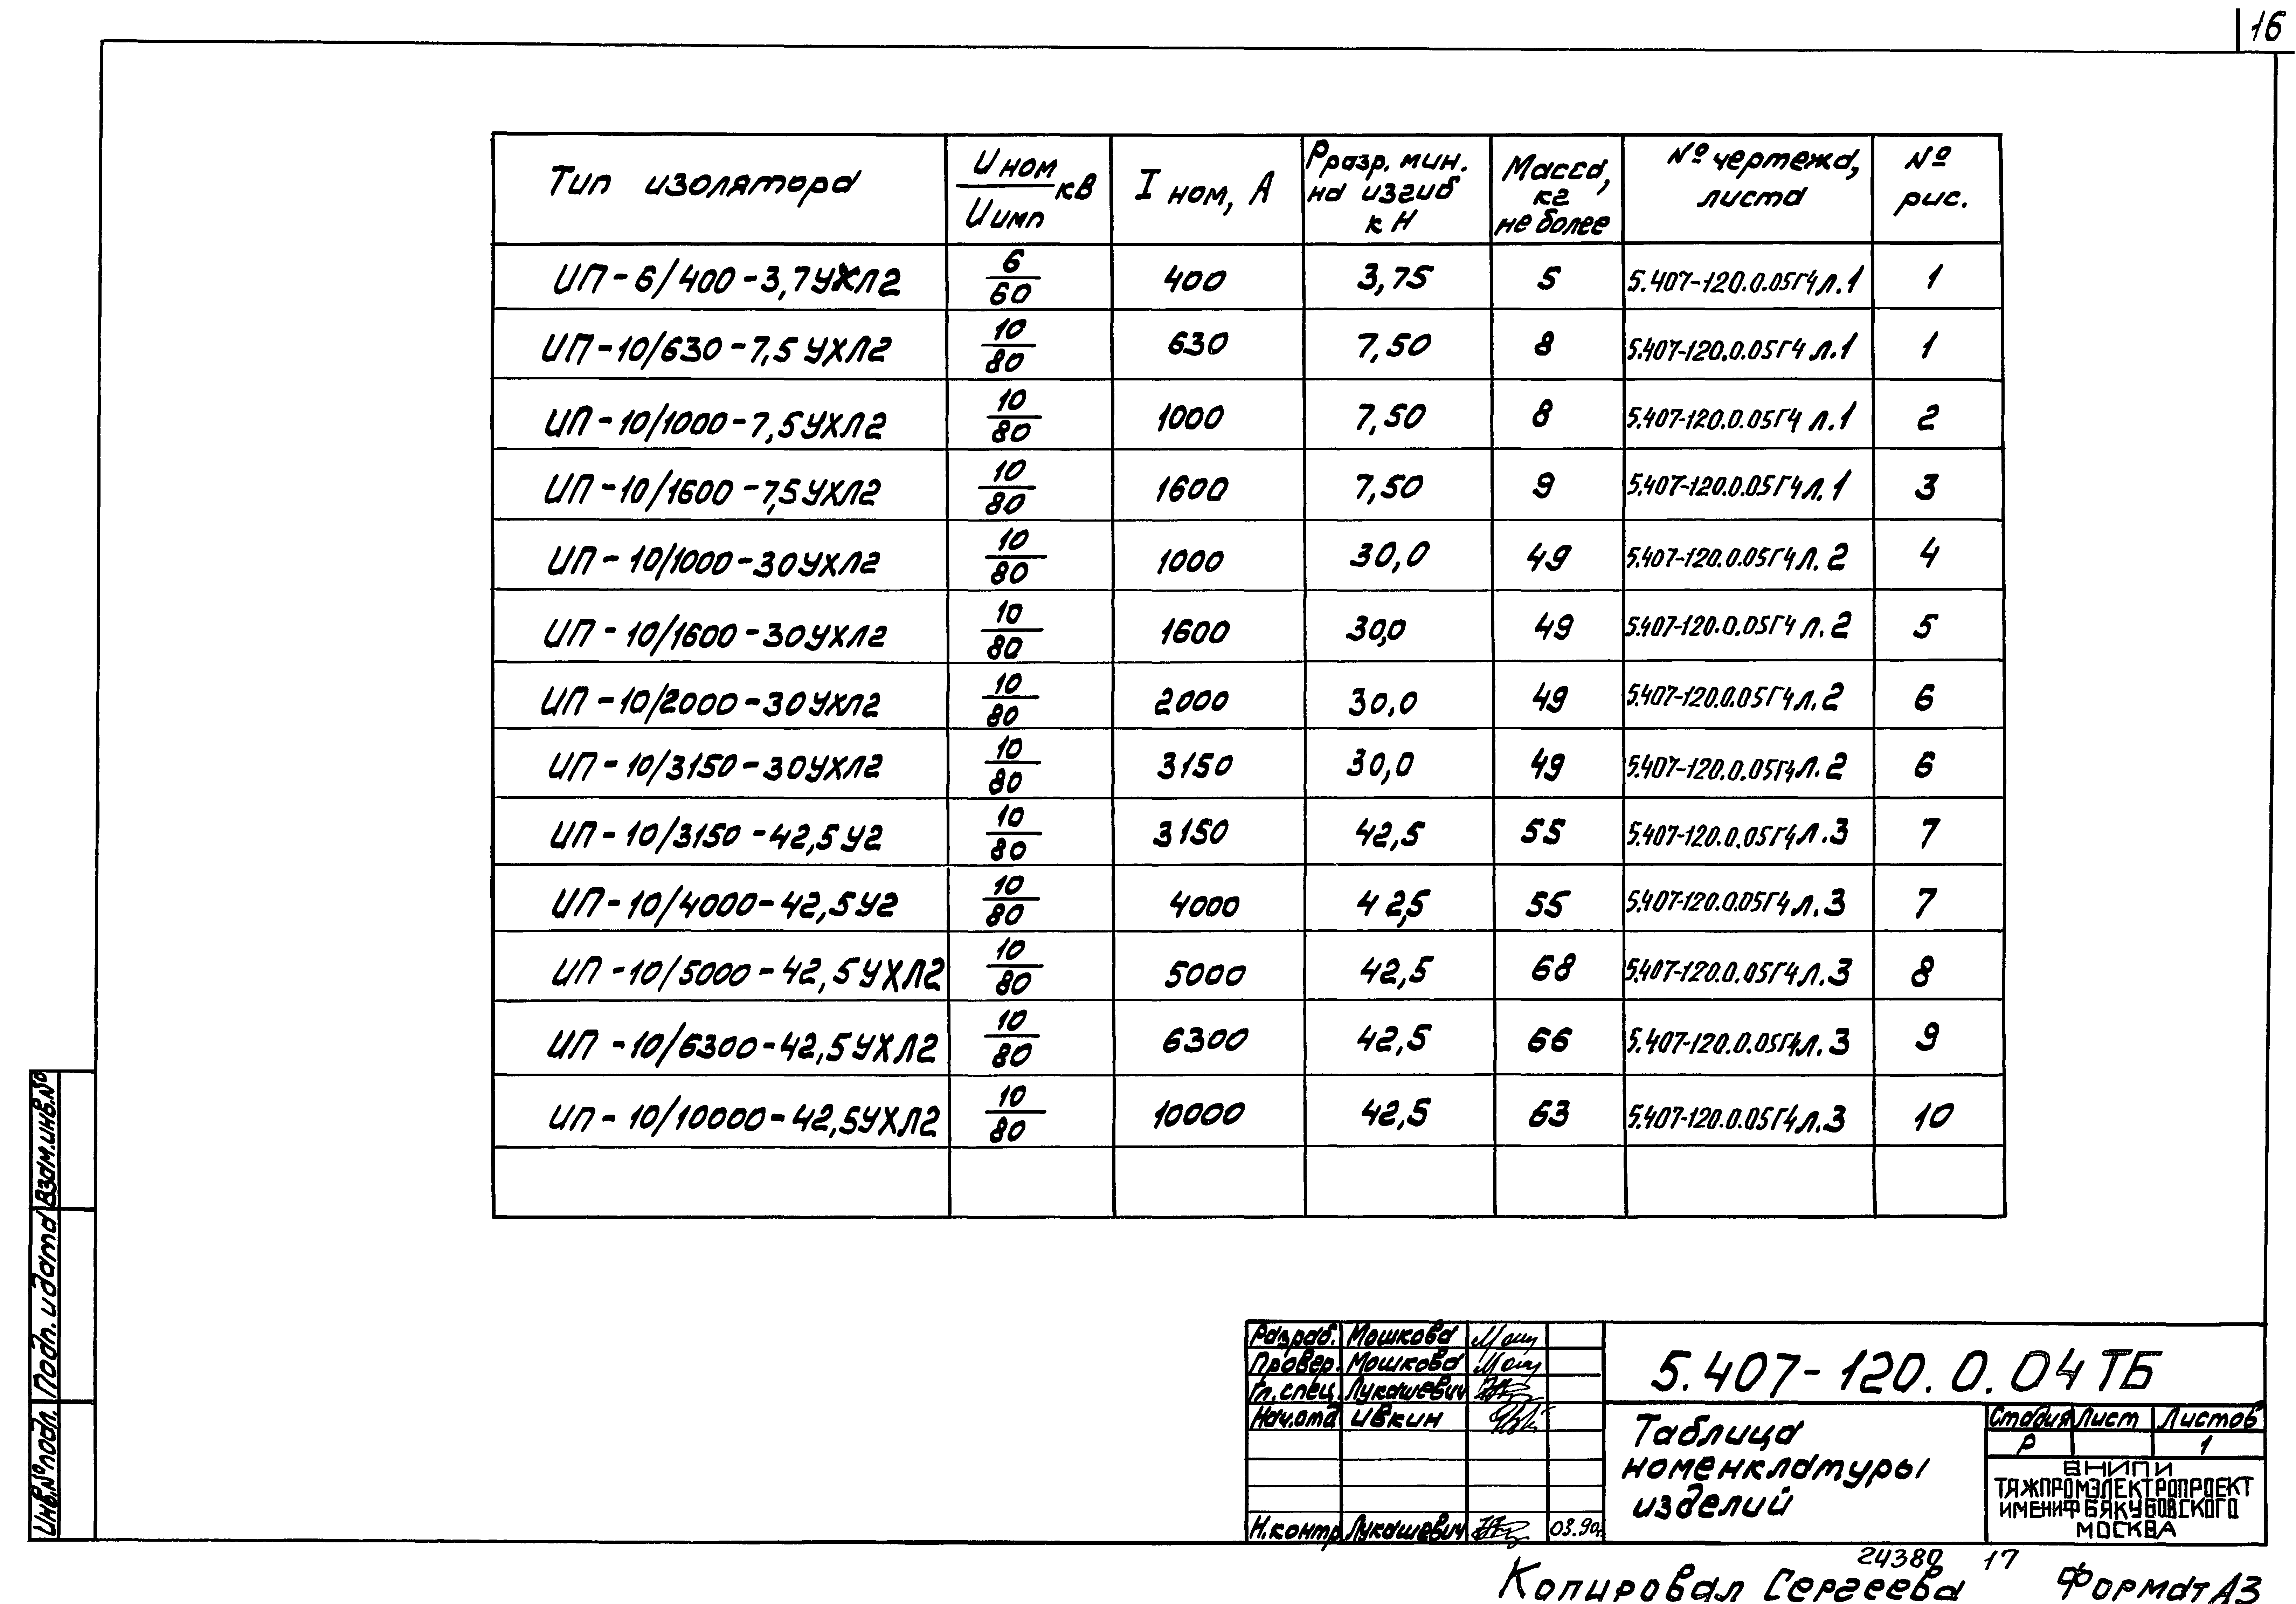 16
Тип изолятора | U ном / U имп кВ | I ном, А | Рразр. мин. на изгиб кН | Масса, кг не более | № чертежа, листа | № рис.
ИП-6/400-3,7УХЛ2 | 6/60 | 400 | 3,75 | 5 | 5.407-120.0.05Г4 л.1 | 1
ИП-10/630-7,5 УХЛ2 | 10/80 | 630 | 7,50 | 8 | 5.407-120.0.05Г4 л.1 | 1
ИП-10/1000-7,5УХЛ2 | 10/80 | 1000 | 7,50 | 8 | 5.407-120.0.05Г4 л.1 | 2
ИП-10/1600-7,5УХЛ2 | 10/80 | 1600 | 7,50 | 9 | 5.407-120.0.05Г4 л.1 | 3
ИП-10/1000-30УХЛ2 | 10/80 | 1000 | 30,0 | 49 | 5.407-120.0.05Г4 л.2 | 4
ИП-10/1600-30УХЛ2 | 10/80 | 1600 | 30,0 | 49 | 5.407-120.0.05Г4 л.2 | 5
ИП-10/2000-30УХЛ2 | 10/80 | 2000 | 30,0 | 49 | 5.407-120.0.05Г4 л.2 | 6
ИП-10/3150-30УХЛ2 | 10/80 | 3150 | 30,0 | 49 | 5.407-120.0.05Г4 л.2 | 6
ИП-10/3150-42,5У2 | 10/80 | 3150 | 42,5 | 55 | 5.407-120.0.05Г4 л.3 | 7
ИП-10/4000-42,5У2 | 10/80 | 4000 | 42,5 | 55 | 5.407-120.0.05Г4 л.3 | 7
ИП-10/5000-42,5УХЛ2 | 10/80 | 5000 | 42,5 | 68 | 5.407-120.0.05Г4 л.3 | 8
ИП-10/6300-42,5УХЛ2 | 10/80 | 6300 | 42,5 | 66 | 5.407-120.0.05Г4 л.3 | 9
ИП-10/10000-42,5УХЛ2 | 10/80 | 10000 | 42,5 | 63 | 5.407-120.0.05Г4 л.3 | 10
Взам.инв.№
Подп. и дата
Инв.№подл.
Разраб. Мошкова
Провер. Мошкова
Гл.спец. Лукашевич
Нач.отд Ивкин
Н.контр Лукашевич 03.90г.
5.407-120.0.04ТБ
Таблица
номенклатуры
изделий
Стадия Лист Листов
Р 1
ВНИПИ
ТЯЖПРОМЭЛЕКТРОПРОЕКТ
ИМЕНИ Ф Б ЯКУБОВСКОГО
МОСКВА
24380 17
Копировал Сергеева Формат А3